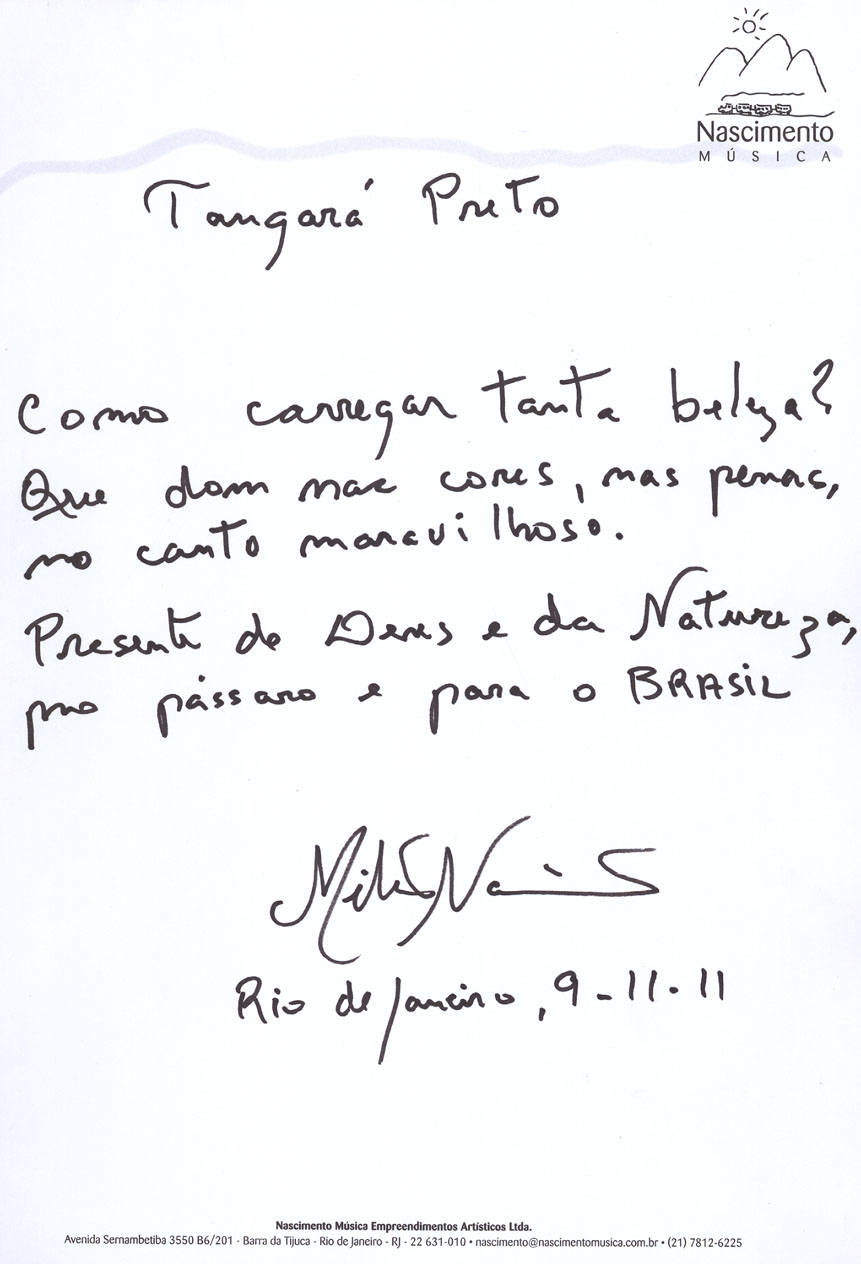 Nascimento
MÚSICA
Tangará Preto
Como carregar tanta beleza?
Que dom nas cores, nas penas,
no canto maravilhoso.
Presente de Deus e da Natureza,
pro pássaro e para o BRASIL
Milton Nascimento
Rio de Janeiro, 9-11-11
Nascimento Música Empreendimentos Artísticos Ltda.
Avenida Sernambetiba 3550 B6/201 - Barra da Tijuca - Rio de Janeiro - RJ - 22 631-010 • nascimento@nascimentomusica.com.br • (21) 7812-6225